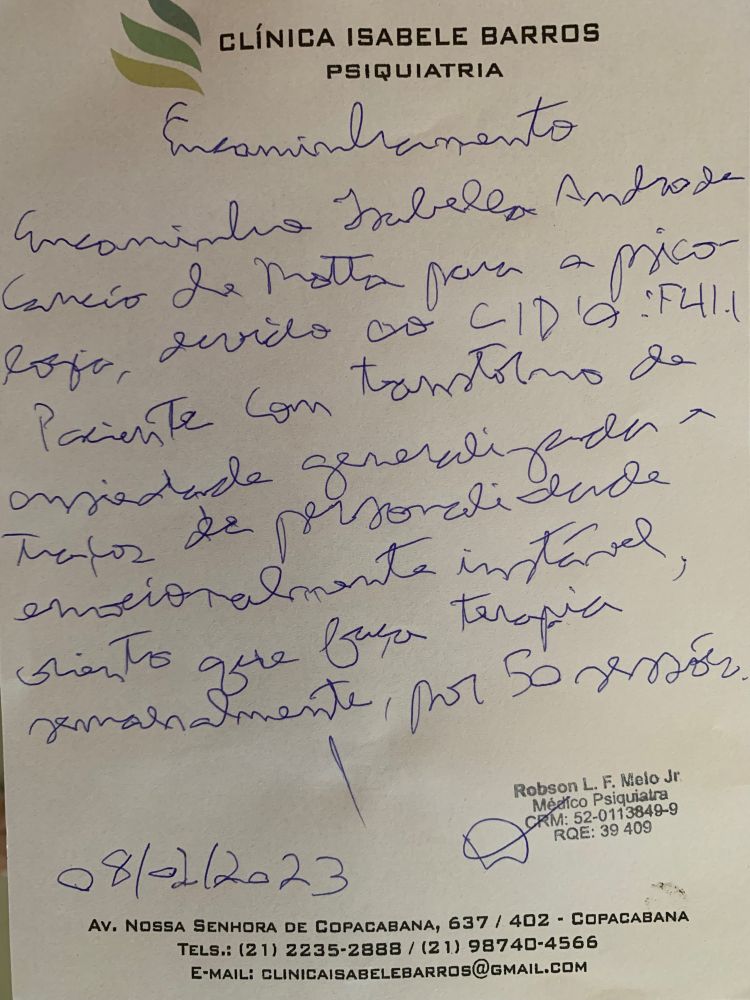 CLÍNICA ISABELE BARROS
PSIQUIATRIA
Encaminhamento
Encaminho Isabella Andrade
Cancio da Motta para a psico-
logia, devido ao CID10: F41.1
Paciente com transtorno de
ansiedade generalizada e
traços de personalidade
emocionalmente instável,
oriento que faça terapia
semanalmente, por 50 sessões.
08/02/2023
Robson L. F. Melo Jr
Médico Psiquiatra
CRM: 52-0113849-9
RQE: 39 409
AV. NOSSA SENHORA DE COPACABANA, 637 / 402 - COPACABANA
TELS.: (21) 2235-2888 / (21) 98740-4566
E-MAIL: CLINICAISABELEBARROS@GMAIL.COM